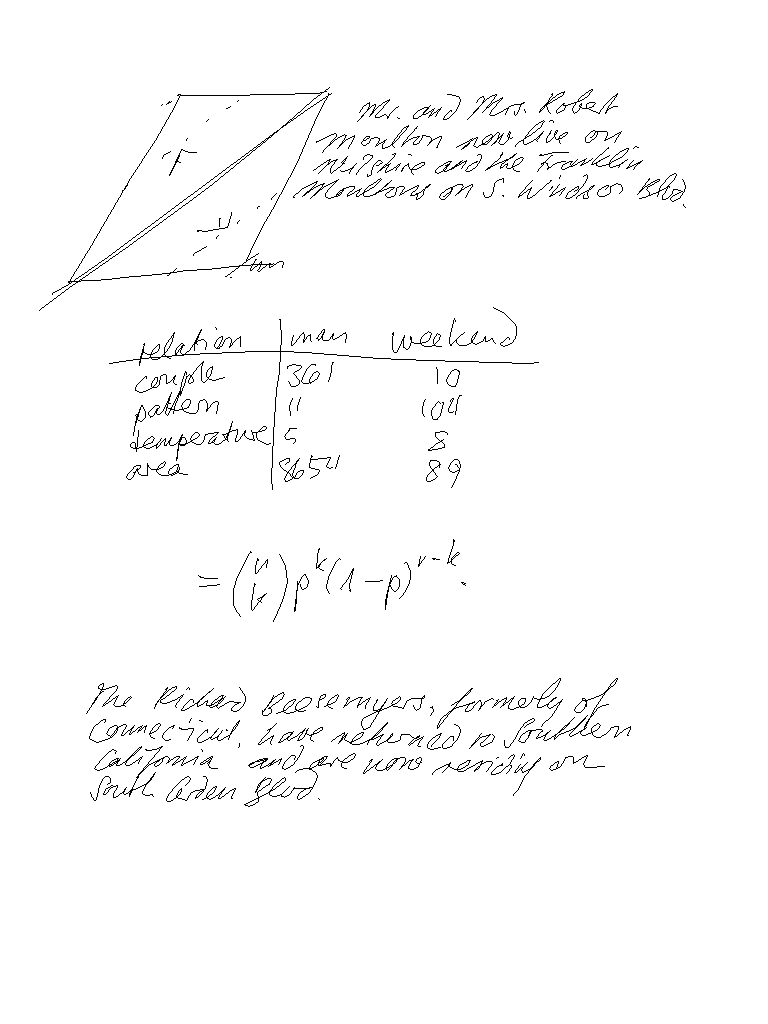 Mr. and Mrs. Robert
Moulton now live on
Wilshire and the Franklin
Moultons on S. Windsor Blvd.
F
relation man weekend
couple 361 10
pattern 11 104
temperature 5 8
area 8654 89
= (n k) p^k (1 - p)^{n-k}.
The Richard Beesemyers, formerly of
Connecticut, have returned to Southern
California and are now residing on
South Arden Blvd.